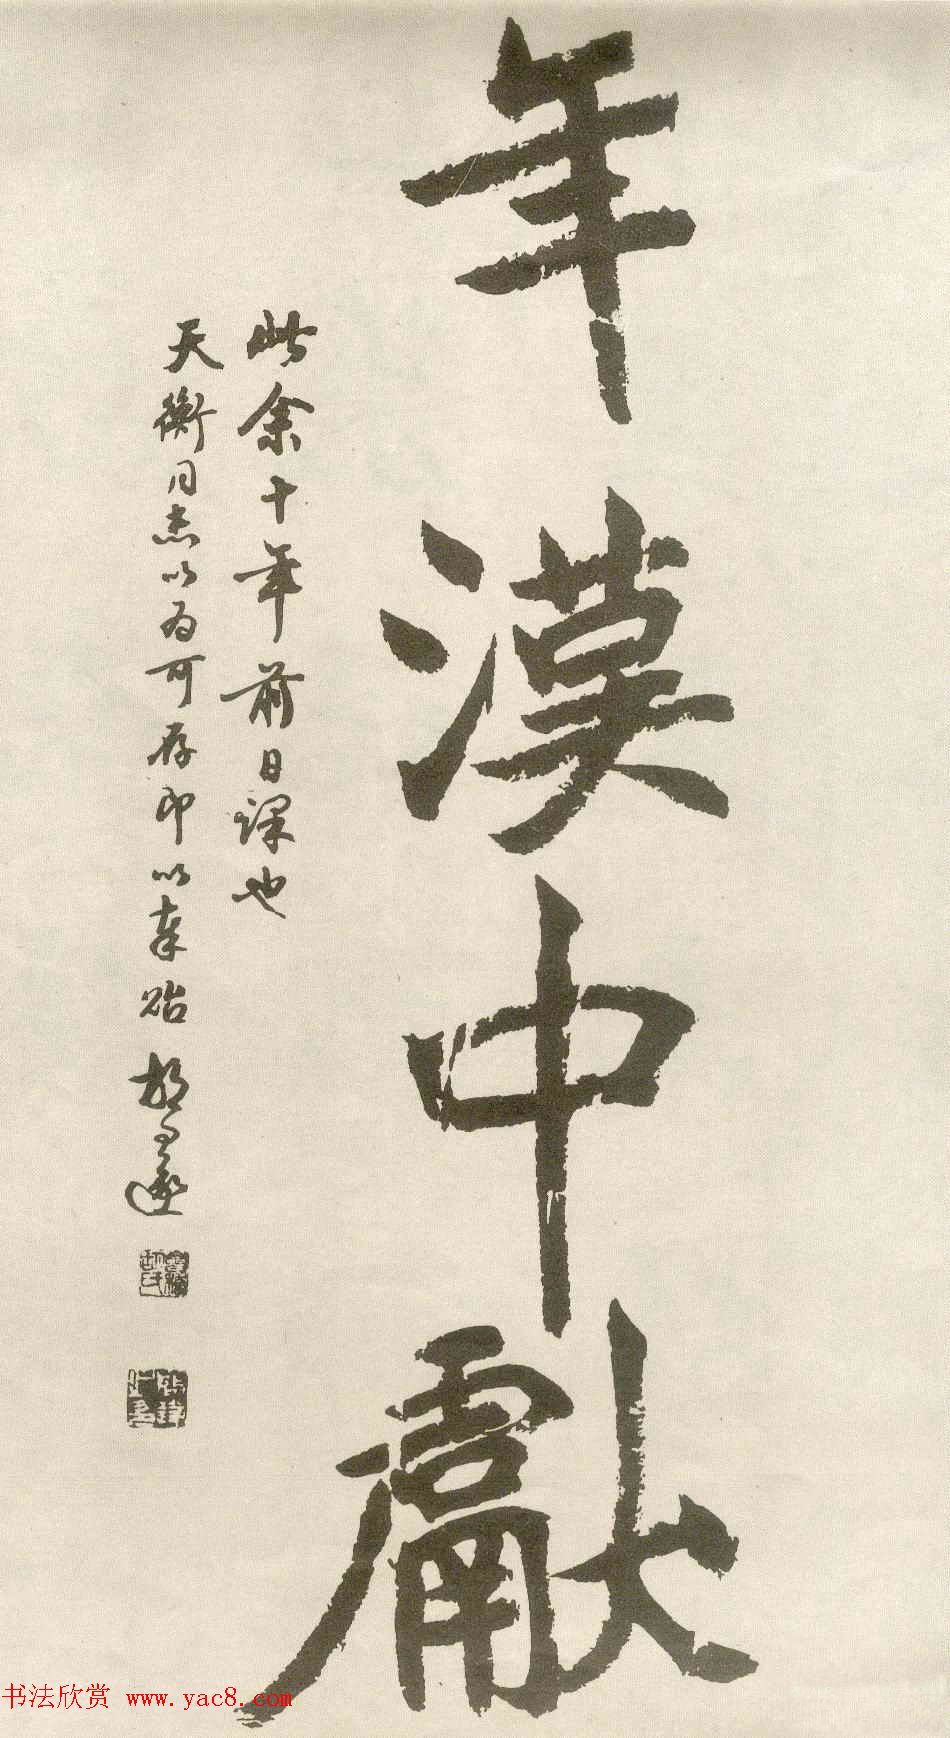 年漢中獻
此余十年前日課也
天衡同志以为可存印以奉貽 胡问遂
书法欣赏 www.yac8.com